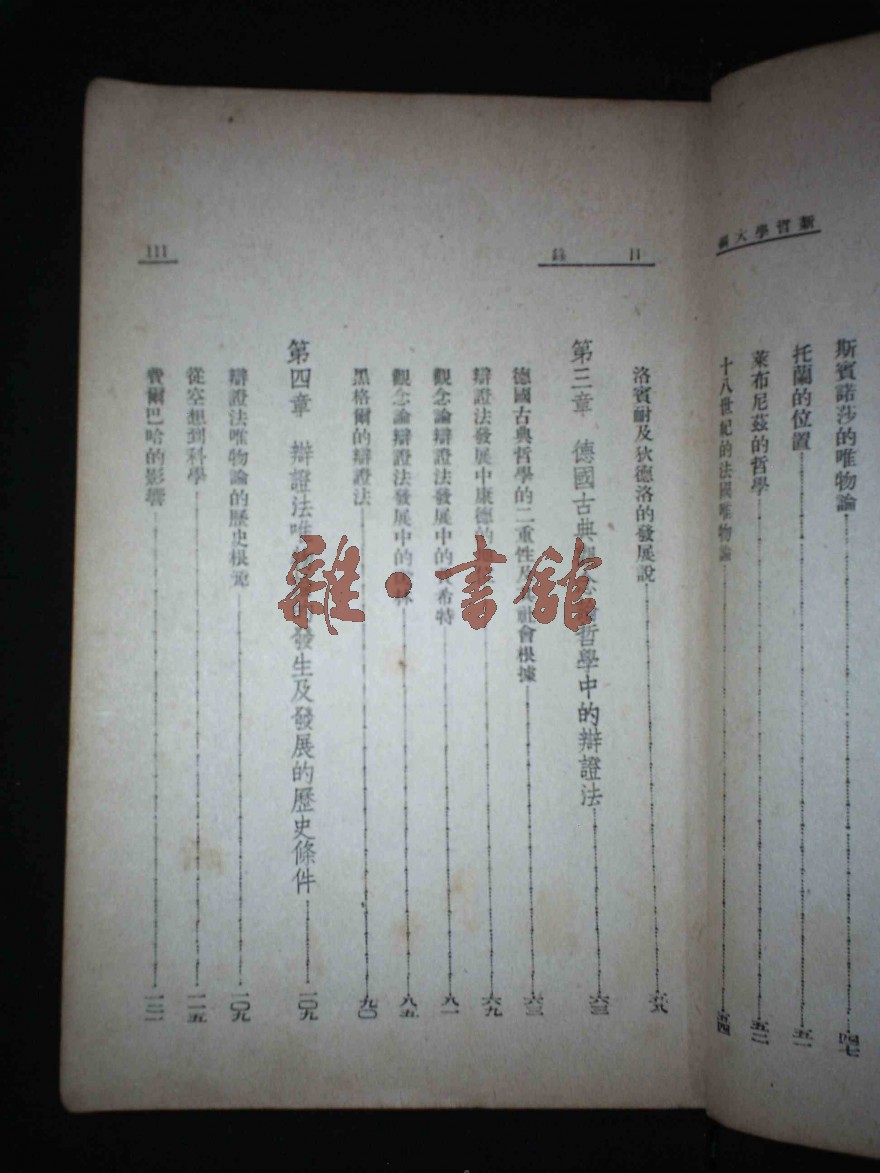 新哲學大綱
斯賓諾莎的唯物論 四七
托蘭的位置 五一
萊布尼茲的哲學 五二
十八世紀的法國唯物論 五四
目錄
洛賓耐及狄德洛的發展說 五八
第三章 德國古典觀念論哲學中的辯證法 六三
德國古典哲學的二重性及其社會根據 六三
辯證法發展中康德的 六九
觀念論辯證法發展中的費希特 八一
觀念論辯證法發展中的 八五
黑格爾的辯證法 九〇
第四章 辯證法唯物論的發生及發展的歷史條件 一〇九
辯證法唯物論的歷史根源 一〇九
從空想到科學 一一五
費爾巴哈的影響 一二二
111
雜·書館